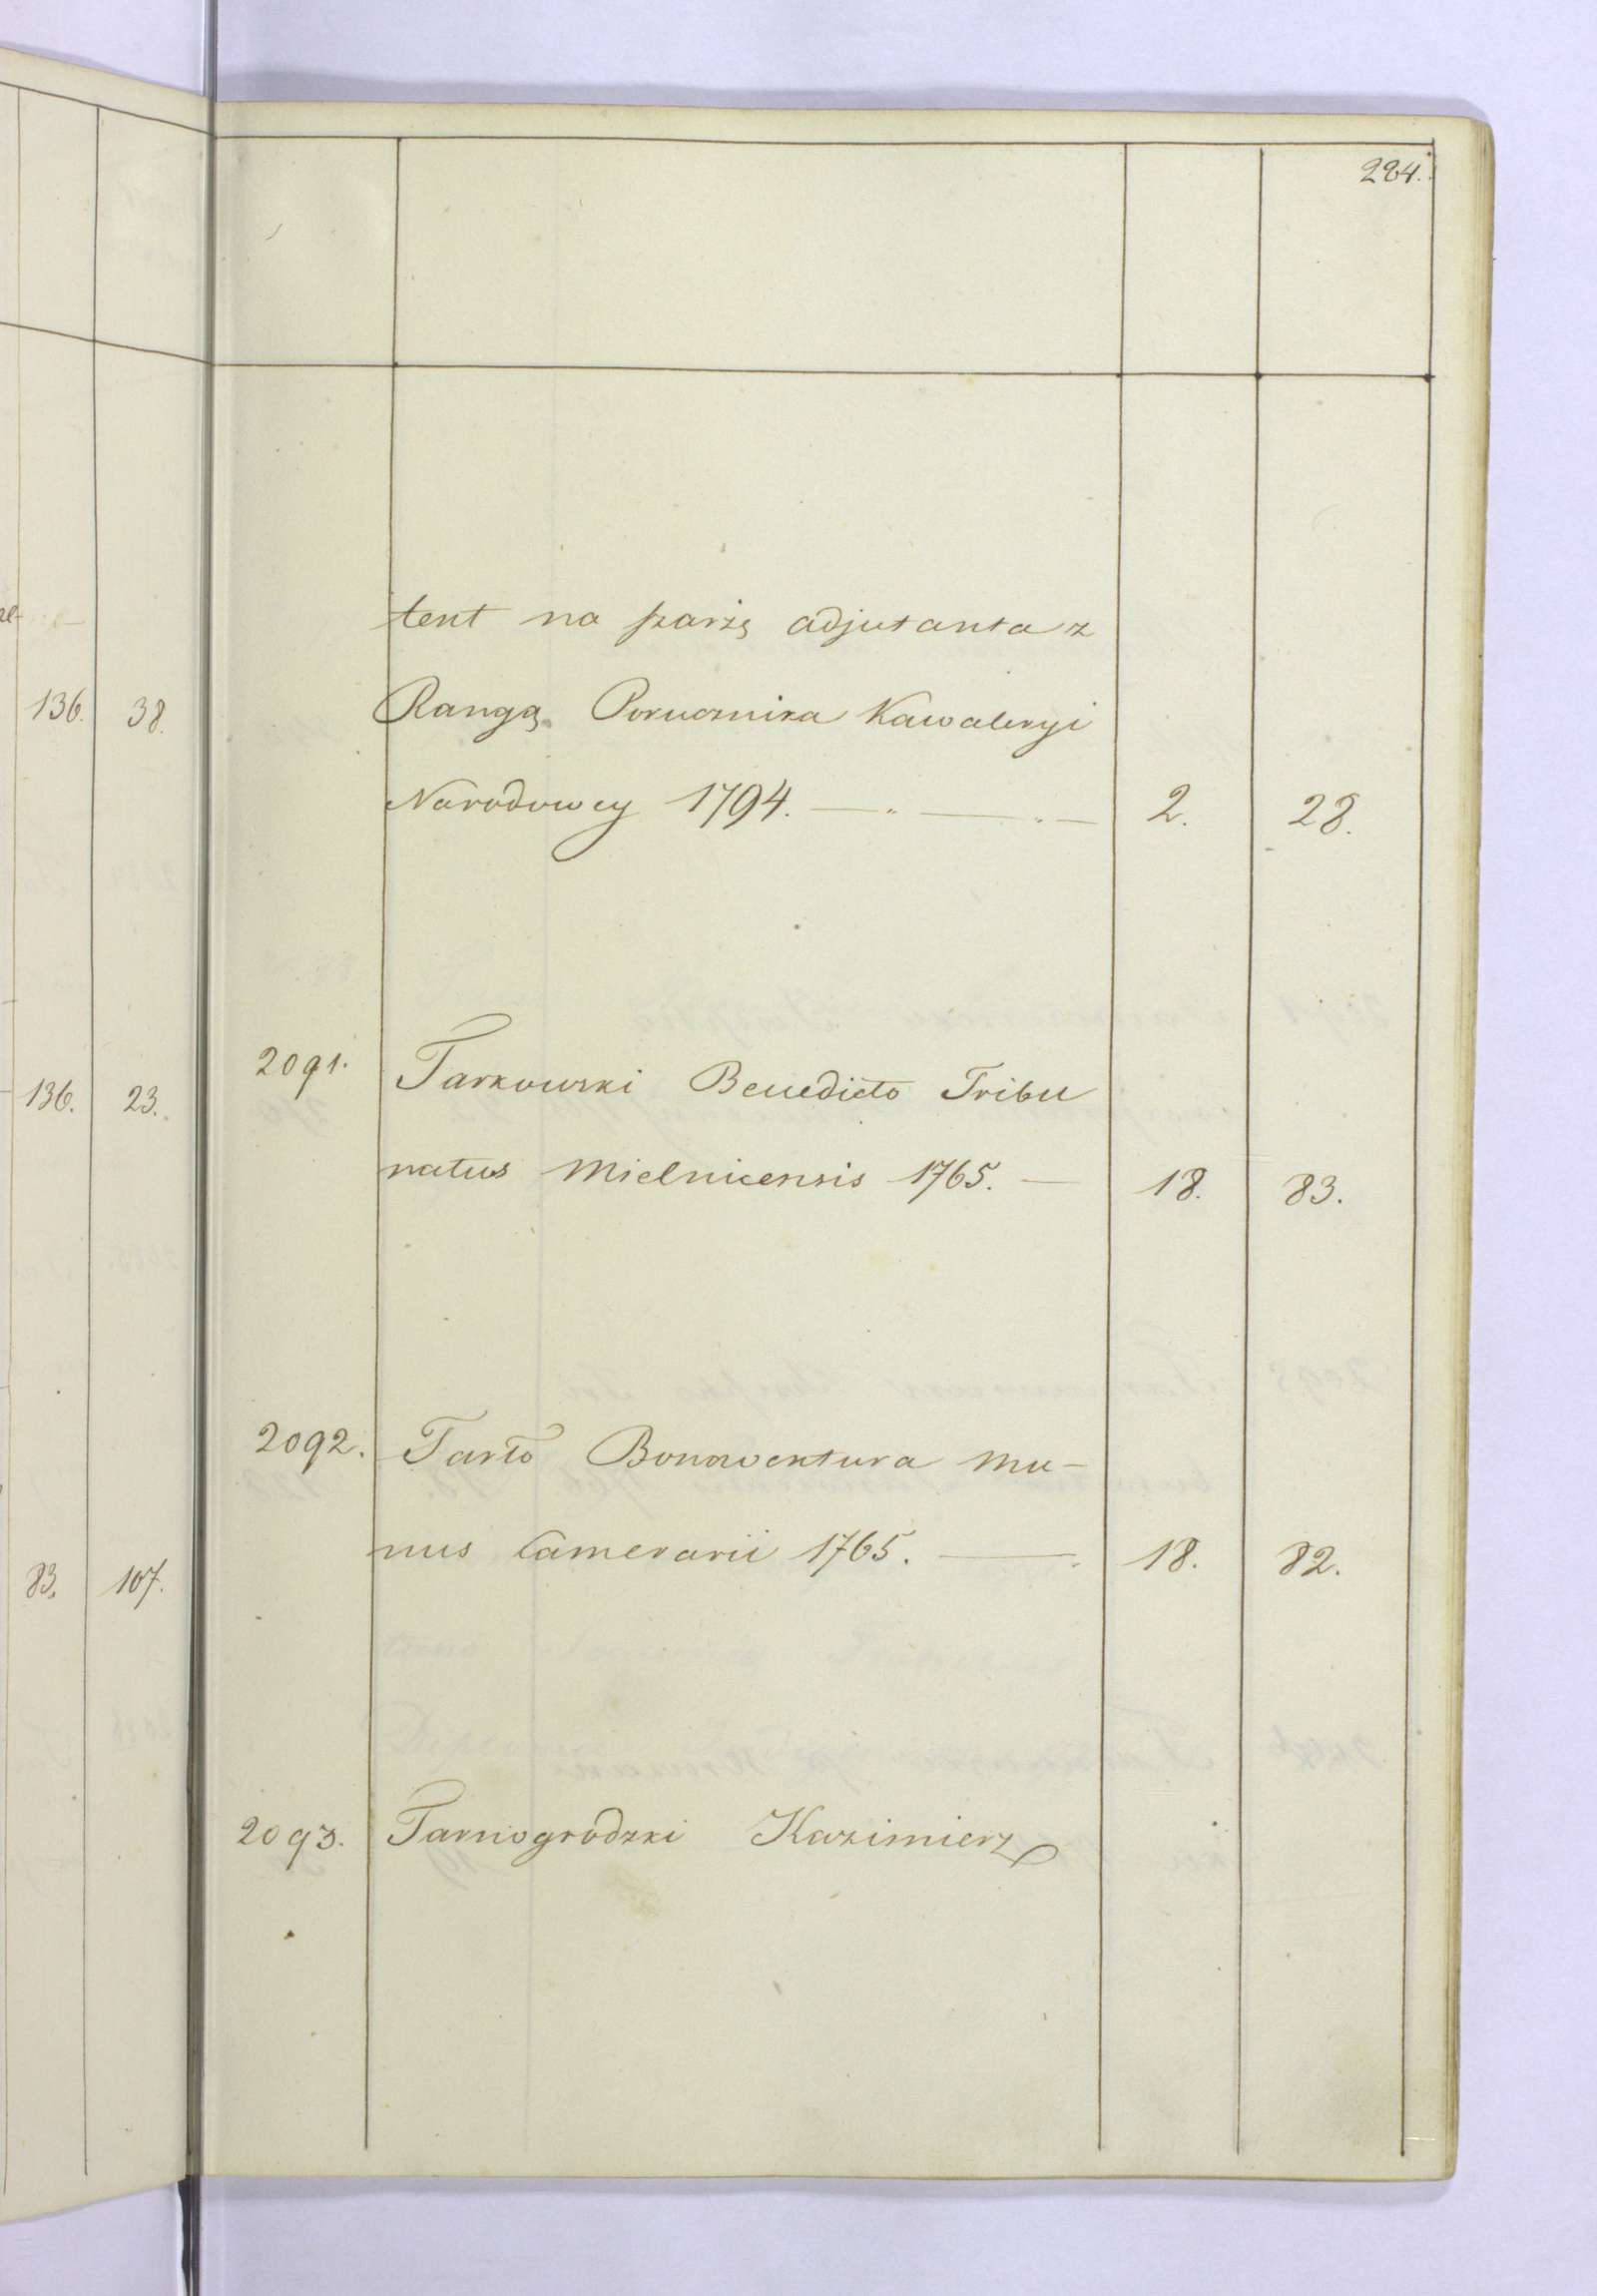 284.
tent na szarżę adjutanta z
Rangą Porucznika Kawaleryi
Narodowey 1794. — 2. 28.
2091. Tarkowski Benedicto Tribu
natus Mielnicensis 1765. — 18. 83.
2092. Tarło Bonawentura Mu-
nus Camerarii 1765. — 18. 82.
2093. Tarnogrodzki Kazimierz
136. 38.
136. 23.
83. 107.